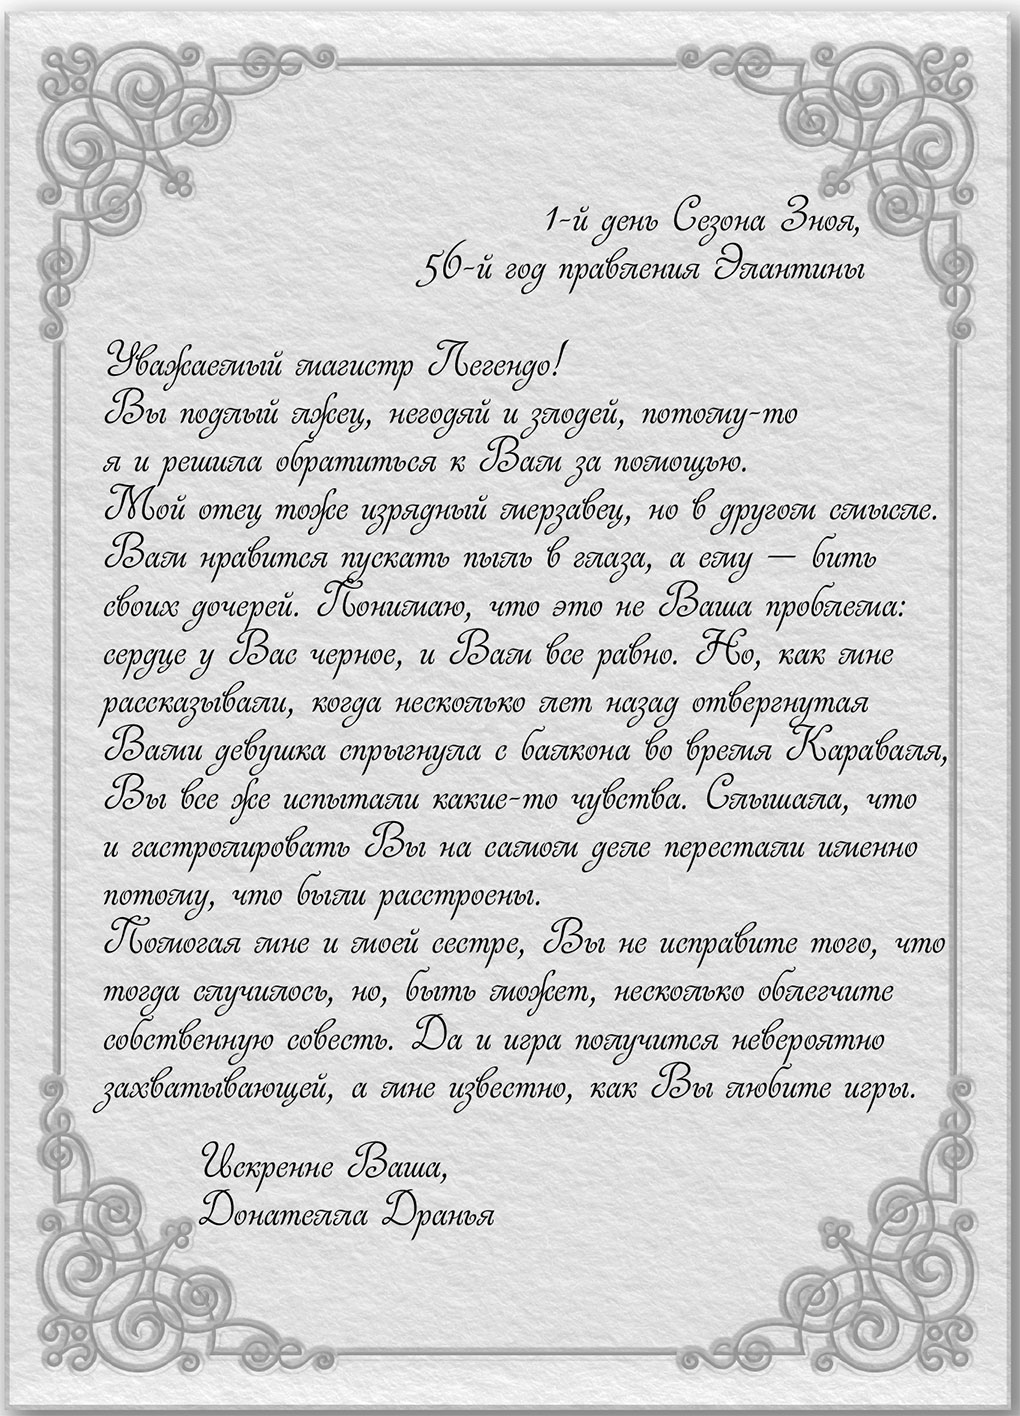 1-й день Сезона Зноя,
56-й год правления Элантины
Уважаемый магистр Легендо!
Вы подлый лжец, негодяй и злодей, потому-то
я и решила обратиться к Вам за помощью.
Мой отец тоже изрядный мерзавец, но в другом смысле.
Вам нравится пускать пыль в глаза, а ему — бить
своих дочерей. Понимаю, что это не Ваша проблема:
сердце у Вас черное, и Вам все равно. Но, как мне
рассказывали, когда несколько лет назад отвергнутая
Вами девушка спрыгнула с балкона во время Караваля,
Вы все же испытали какие-то чувства. Слышала, что
и гастролировать Вы на самом деле перестали именно
потому, что были расстроены.
Помогая мне и моей сестре, Вы не исправите того, что
тогда случилось, но, быть может, несколько облегчите
собственную совесть. Да и игра получится невероятно
захватывающей, а мне известно, как Вы любите игры.
Искренне Ваша,
Донателла Дранья